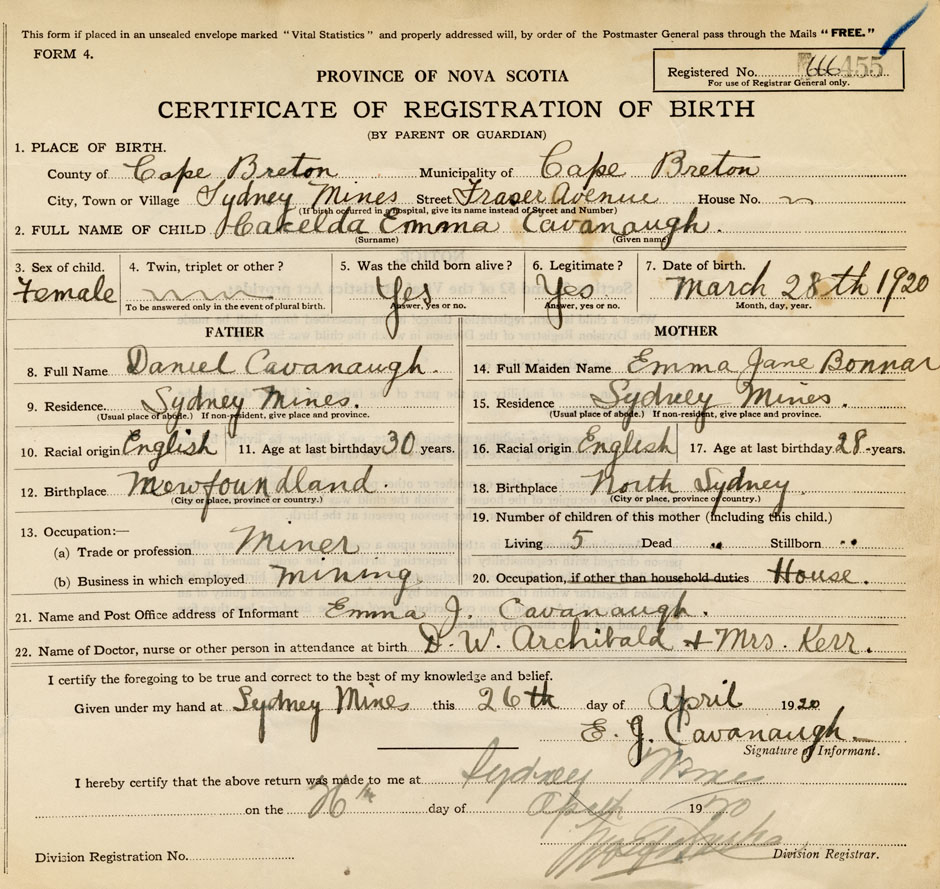 This form if placed in an unsealed envelope marked "Vital Statistics" and properly addressed will, by order of the Postmaster General pass through the Mails "FREE."
FORM 4.
PROVINCE OF NOVA SCOTIA
Registered No. 455
For use of Registrar General only.
CERTIFICATE OF REGISTRATION OF BIRTH
(BY PARENT OR GUARDIAN)
1. PLACE OF BIRTH.
County of Cape Breton Municipality of Cape Breton
City, Town or Village Sydney Mines Street Fraser Avenue House No.
(If birth occurred in a hospital, give its name instead of Street and Number)
2. FULL NAME OF CHILD Emma Cavanaugh.
(Surname) (Given name)
3. Sex of child. 4. Twin, triplet or other? 5. Was the child born alive? 6. Legitimate? 7. Date of birth.
Female Yes Yes. March 28th 1920
To be answered only in the event of plural birth. Answer, yes or no. Answer, yes or no. Month, day, year.
FATHER MOTHER
8. Full Name Daniel Cavanaugh. 14. Full Maiden Name Emma Jane Bonnar
9. Residence Sydney Mines. 15. Residence Sydney Mines.
(Usual place of abode.) If non-resident, give place and province. (Usual place of abode.) If non-resident, give place and province.
10. Racial origin English 11. Age at last birthday 30 years. 16. Racial origin English 17. Age at last birthday 28 years.
12. Birthplace Newfoundland. 18. Birthplace North Sydney.
(City or place, province or country.) (City or place, province or country.)
13. Occupation:— 19. Number of children of this mother (including this child.)
(a) Trade or profession Miner Living 5 Dead Stillborn
(b) Business in which employed Mining 20. Occupation, if other than household duties House.
21. Name and Post Office address of Informant Emma J. Cavanaugh.
22. Name of Doctor, nurse or other person in attendance at birth D. W. Archibald + Mrs. Kerr.
I certify the foregoing to be true and correct to the best of my knowledge and belief.
Given under my hand at Sydney Mines this 26th day of April 1920
E. J. Cavanaugh
Signature of Informant.
I hereby certify that the above return was made to me at Sydney Mines
on the 26th day of April 1920
Division Registration No. Division Registrar.